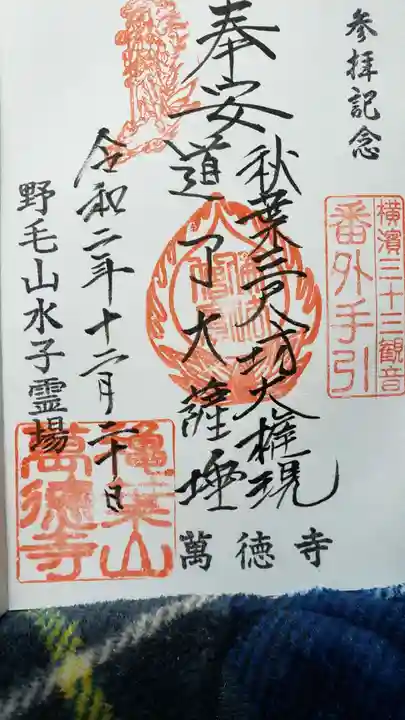 参拝記念
横濱三十三観音
番外手引
奉安
秋葉三尺坊大権現
道了大薩埵
令和二年十二月二十日
野毛山水子霊場
萬徳寺
亀葉山
萬德寺